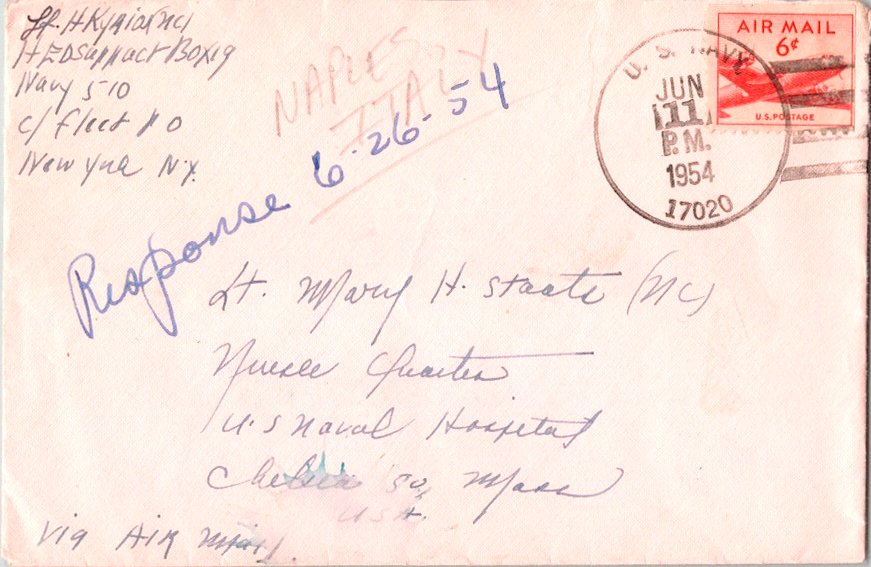 Lt. H
HEDSuppact Box 19
Navy 510
c/o Fleet P O
New York N.Y.
NAPLES
ITALY
Response 6-26-54
U. S. NAVY
JUN
11
P.M.
1954
17020
AIR MAIL
6¢
U.S. POSTAGE
Lt. Mary H. Staats (NC)
Nurse Quarters
U.S Naval Hospital
Chelsea 50, Mass
USA.
Via Air Mail.